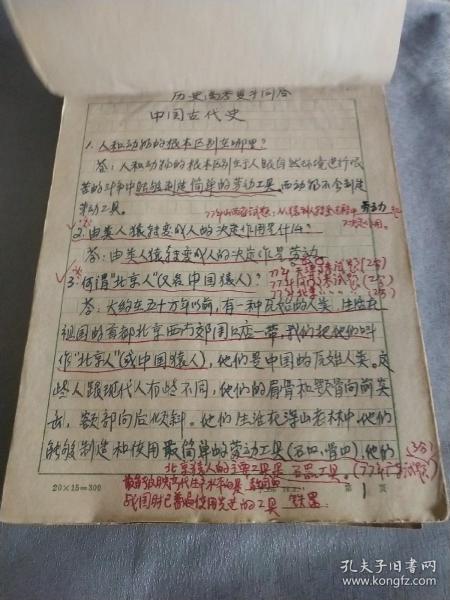 历史高考复习问答
中国古代史
1. 人和动物的根本区别在哪里?
答: 人和动物的根本区别在于人跟自然环境进行艰
苦的斗争中能够制造简单的劳动工具, 而动物不会制造
劳动工具。
77年山西省试题: 从猿到人转变过程中 劳动力
2. 由类人猿转变成人的决定作用是什么?
答: 由类人猿转变成人的决定作用是劳动
3. 何谓"北京人"(又名中国猿人)?
77年天津考试题 (2分)
答: 大约在五十万年以前, 有一种原始的人类, 生活在
祖国的首都北京西南郊周口店一带, 我们把他们叫
作"北京人"(或中国猿人), 他们是中国的原始人类。这
些人跟现代人有些不同, 他们的眉骨和颚骨向前突
出, 额部向后倾斜。他们生活在深山老林中, 他们
能够制造和使用最简单的劳动工具(石器、骨器), 他们
北京猿人的主要工具是 石器工具。(77年广东试题) (3分)
战国时已普遍使用先进的工具 铁器
20×15=300
第 1 页
孔夫子旧书网
www.kongfz.com